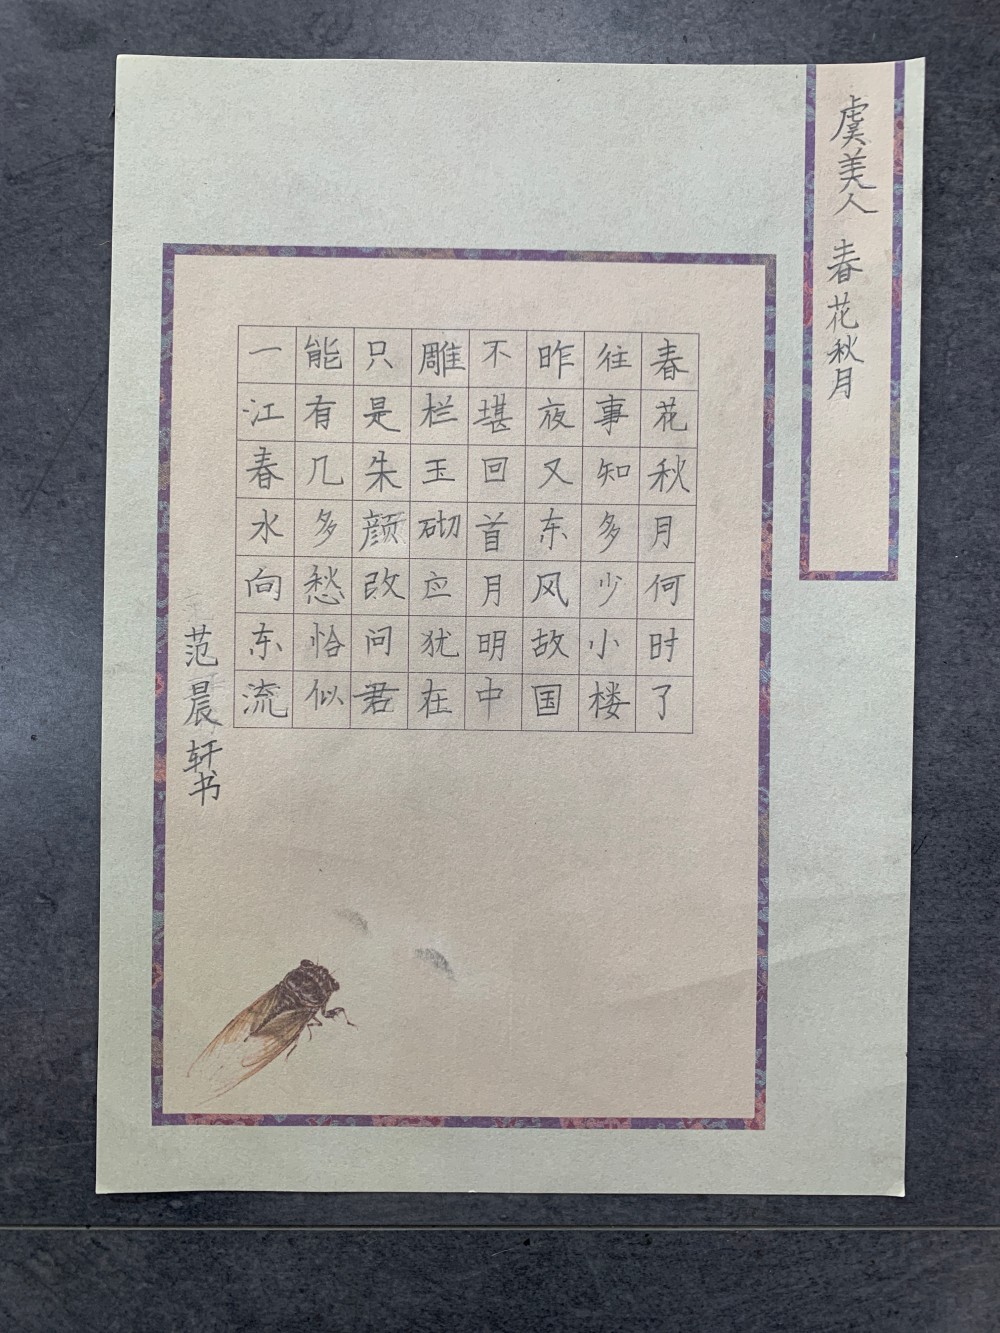 虞美人 春花秋月
春花秋月何时了
往事知多少小楼
昨夜又东风故国
不堪回首月明中
雕栏玉砌应犹在
只是朱颜改问君
能有几多愁恰似
一江春水向东流
范晨轩书